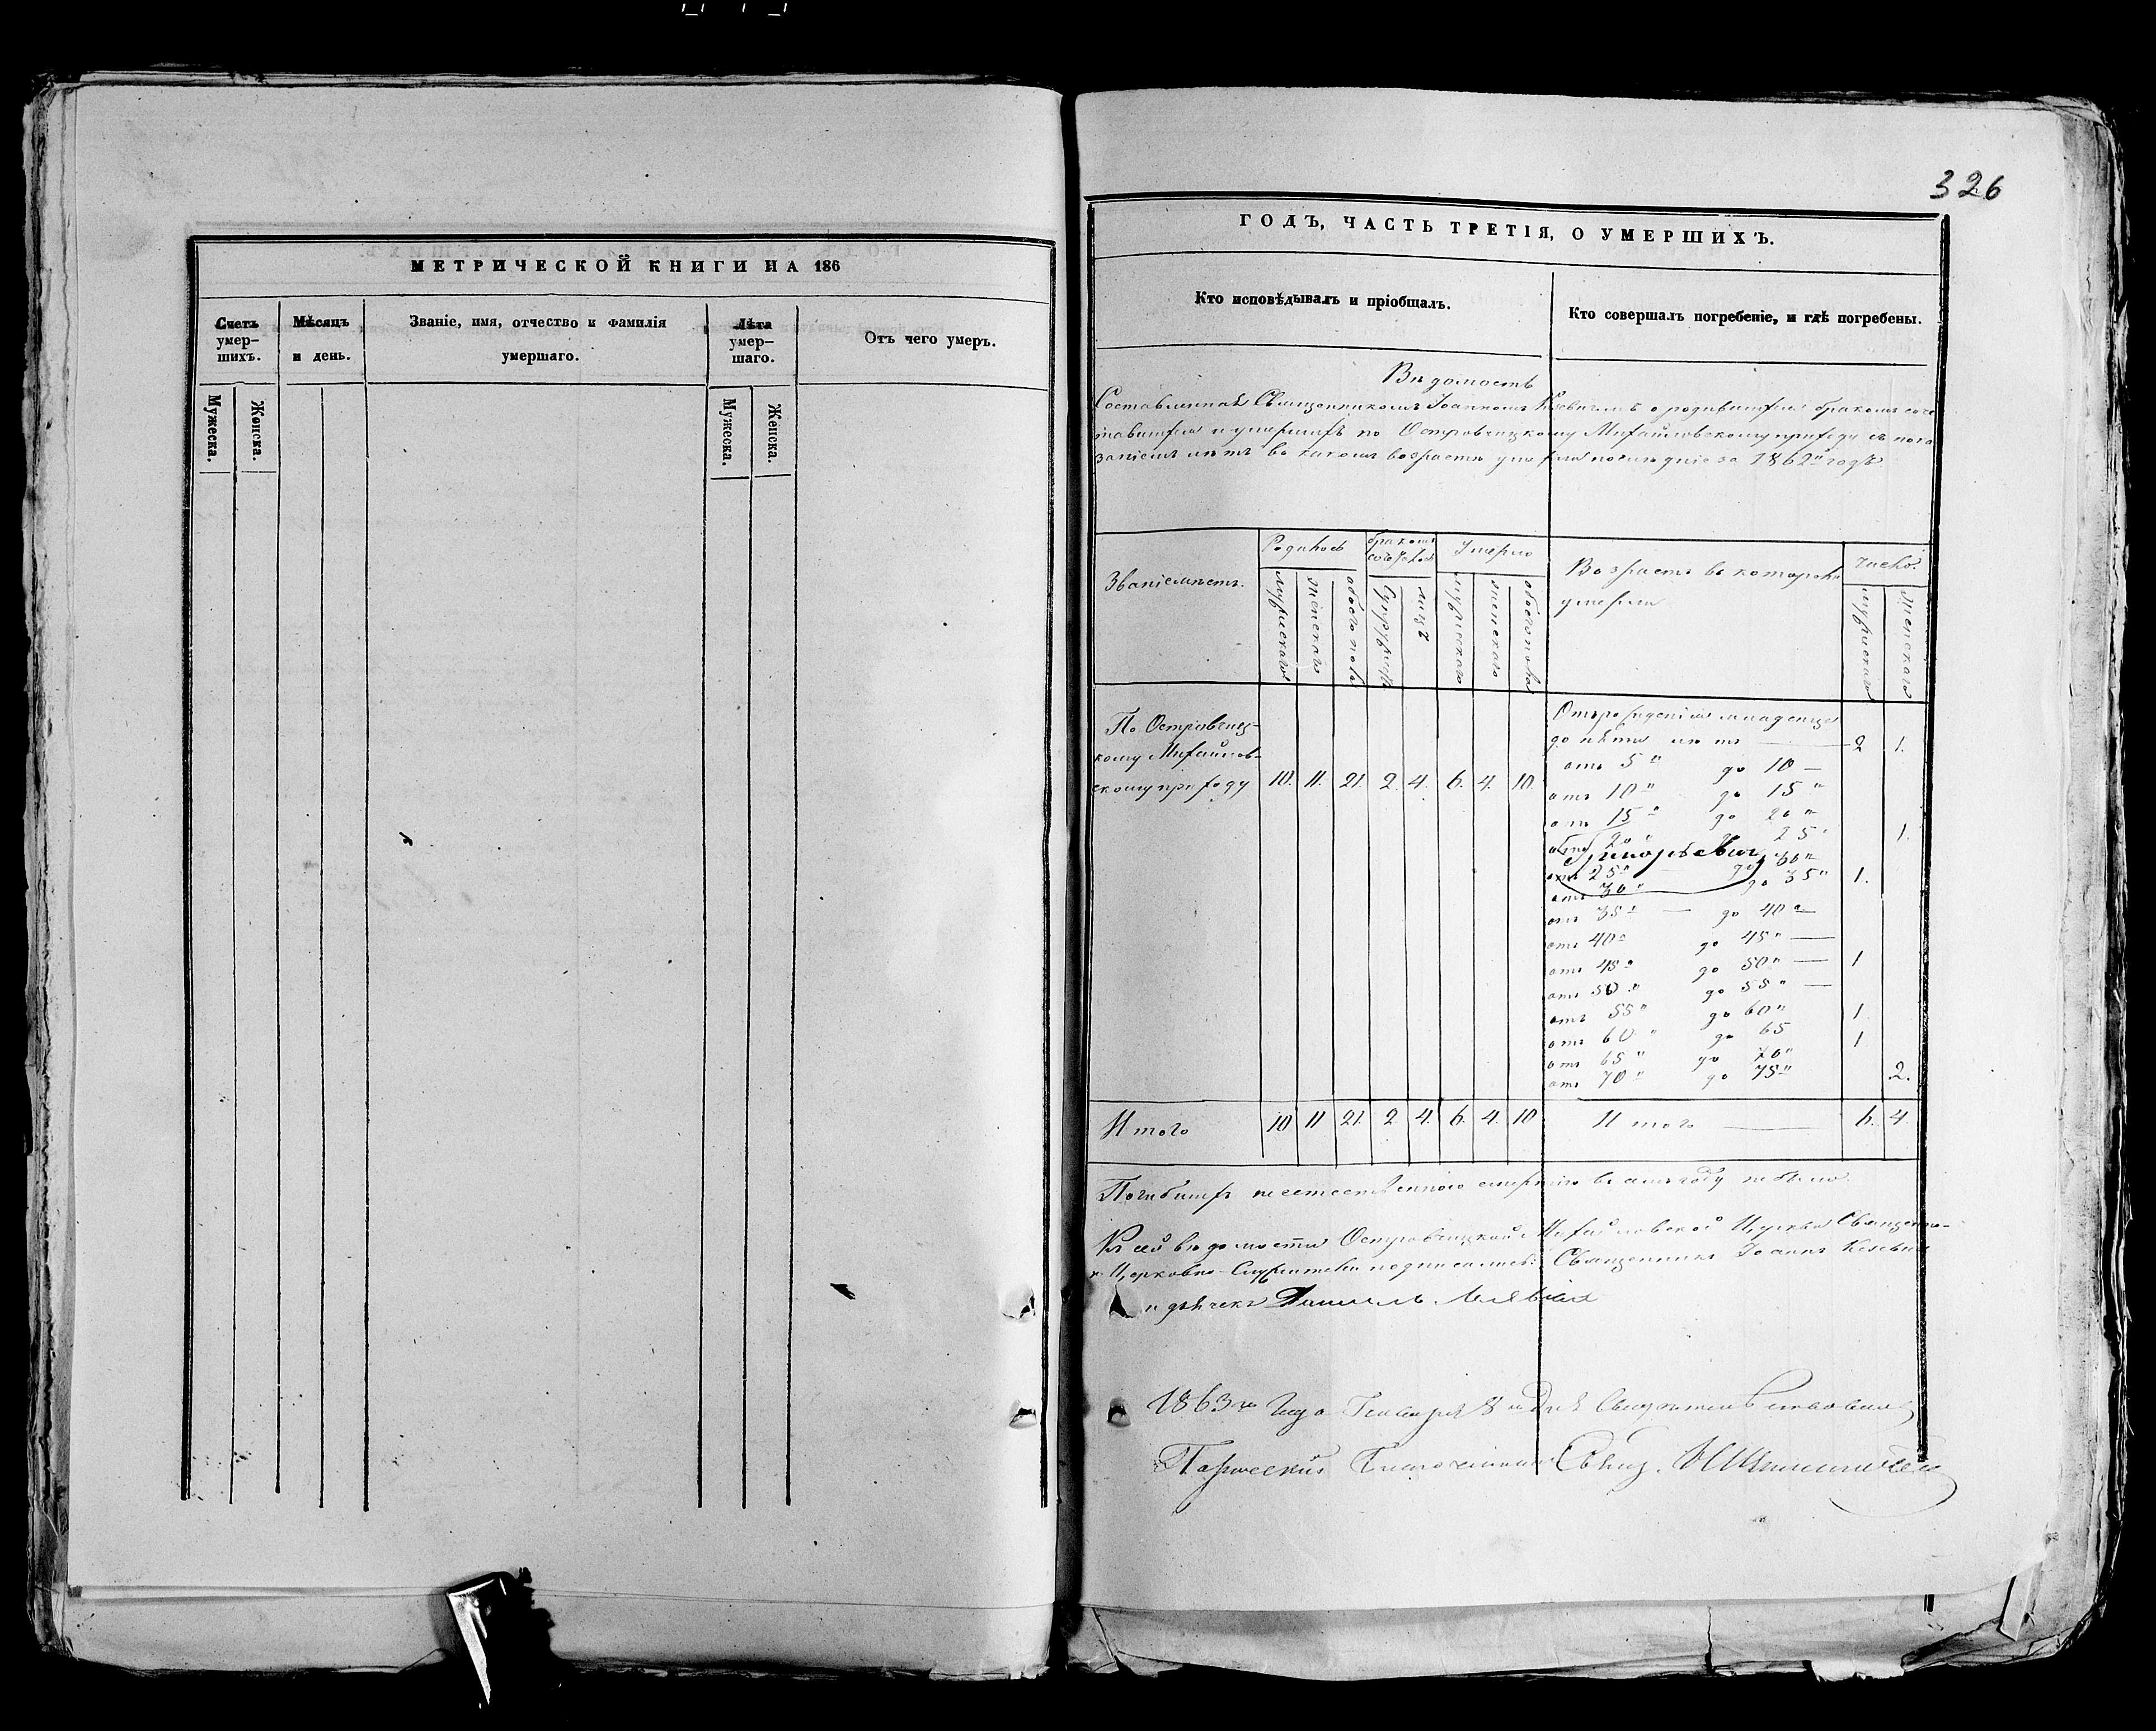 МЕТРИЧЕСКОЙ КНИГИ НА 186
Счетъ умер-шихъ.
Мѣсяцъ и день.
Званіе, имя, отчество и фамилія умершаго.
Лѣта умер-шаго.
Отъ чего умеръ.
Мужеска.
Женска.
Мужеска.
Женска.
326
ГОДЪ, ЧАСТЬ ТРЕТІЯ, О УМЕРШИХЪ.
Кто исповѣдывалъ и пріобщалъ.
Кто совершалъ погребеніе, и гдѣ погребены.
Вѣдомость
Составленная Священникомъ Іоанномъ о родившихся бракомъ соче
тавшихся и умершихъ по Островчицкому Михайловскому приходу съ пока
заніемъ лѣтъ въ какомъ возрастѣ умерли за 1862й годъ
Званіе мѣстъ.
Родилось
бракомъ сочеталось
Умерло
Возрастъ въ которомъ умерли
Число.
мужескаго
женскаго
обоего пола
Супружествъ
лицъ
мужескаго
женскаго
обоего пола
мужескаго
женскаго
По Островчиц-
кому Михайлов-
скому приходу 10. 11. 21. 2. 4. 6. 4. 10.
Отъ рожденія младенцы
до пяти лѣтъ — 2 1.
отъ 5" до 10 —
отъ 10" до 15 "
отъ 15 " до 20 "
отъ 20" 25" 1.
Григорьевич
отъ 25" до 30"
отъ 30" до 35" 1.
отъ 35" — до 40" —
отъ 40" до 45" —
отъ 45" до 50" — 1
отъ 50" до 55" —
отъ 55" до 60" 1.
отъ 60" до 65 1
отъ 65" до 70"
отъ 70" до 75" 2.
Итого 10 11 21. 2 4. 6. 4. 10 Итого — 6. 4
Погибшихъ неестественною смертію въ семъ году не было.
Къ сей вѣдомости Островчицкой Михайловской Церкви Священно-
и Церковно-Служители подписались: Священникъ Іоаннъ
и дьячекъ Даніилъ
1863го Года Генваря 8го дня Свидетельствовалъ
Паричскій Благочинный Свящ.